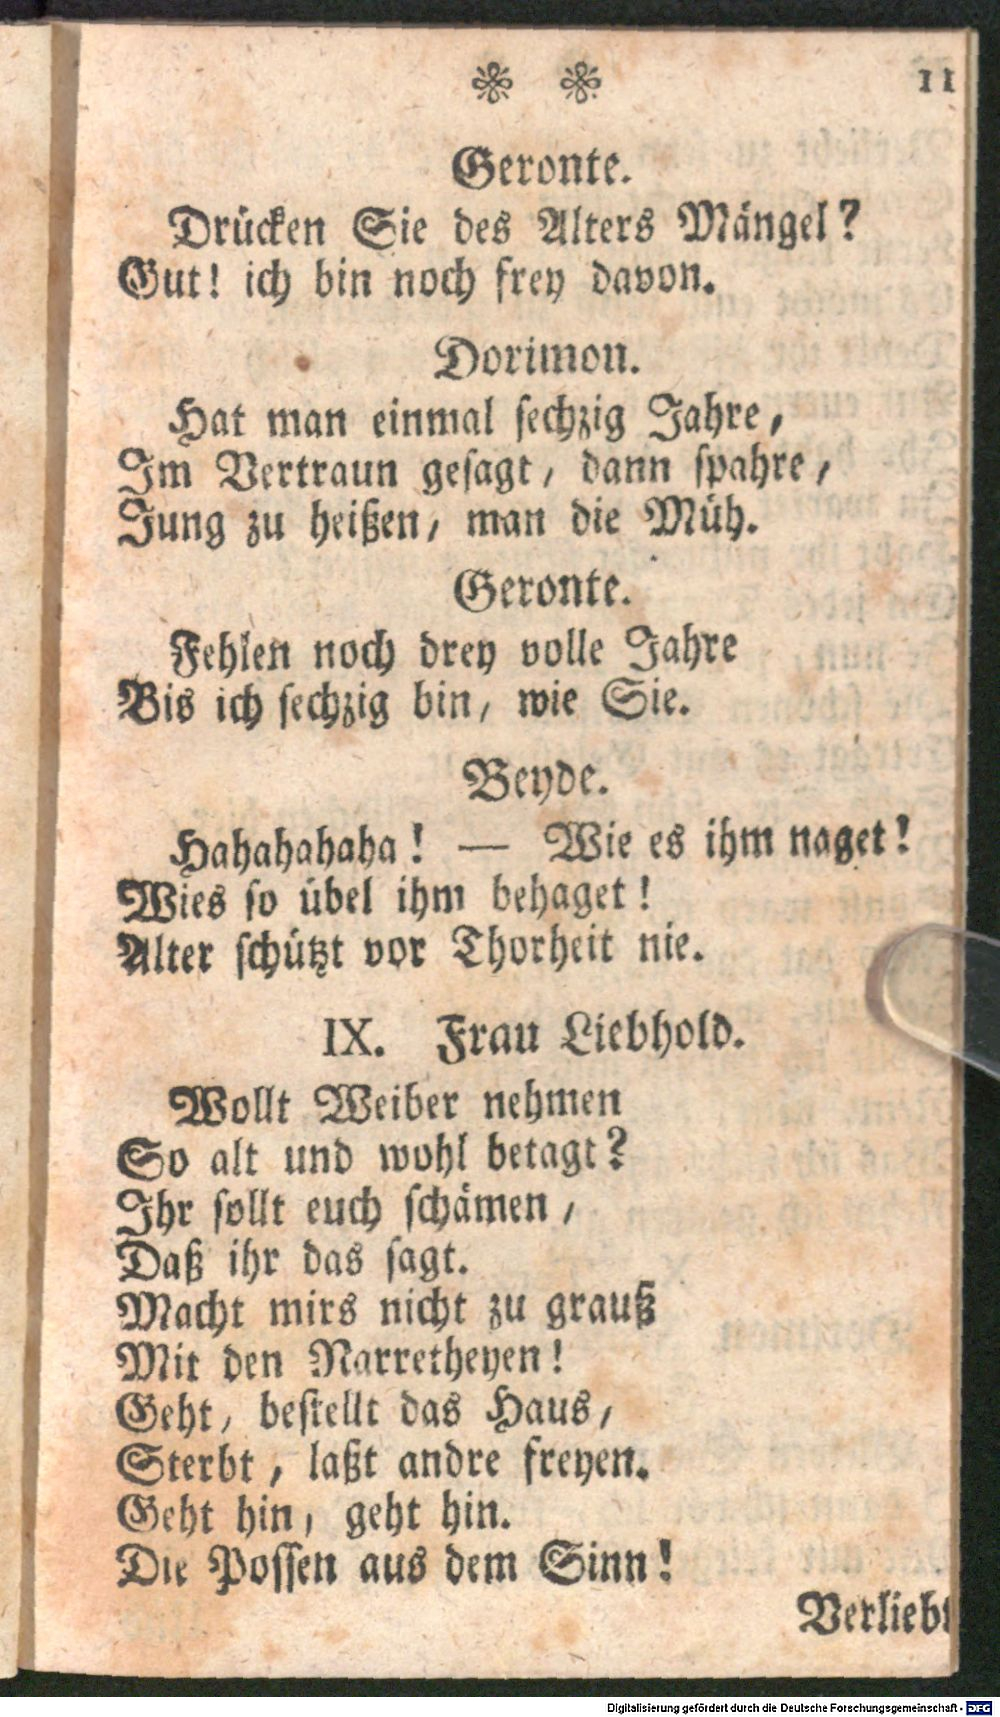 11
Geronte.
Drücken Sie des Alters Mängel?
Gut! ich bin noch frey davon.
Dorimon.
Hat man einmal sechzig Jahre,
Im Vertraun gesagt, dann spahre,
Jung zu heißen, man die Müh.
Geronte.
Fehlen noch drey volle Jahre
Bis ich sechzig bin, wie Sie.
Beyde.
Hahahahaha! — Wie es ihm naget!
Wies so übel ihm behaget!
Alter schützt vor Thorheit nie.
IX. Frau Liebhold.
Wollt Weiber nehmen
So alt und wohl betagt?
Ihr sollt euch schämen,
Daß ihr das sagt.
Macht mirs nicht zu grauß
Mit den Narretheyen!
Geht, bestellt das Haus,
Sterbt, laßt andre freyen.
Geht hin, geht hin.
Die Possen aus dem Sinn!
Verliebt
Digitalisierung gefördert durch die Deutsche Forschungsgemeinschaft - DFG